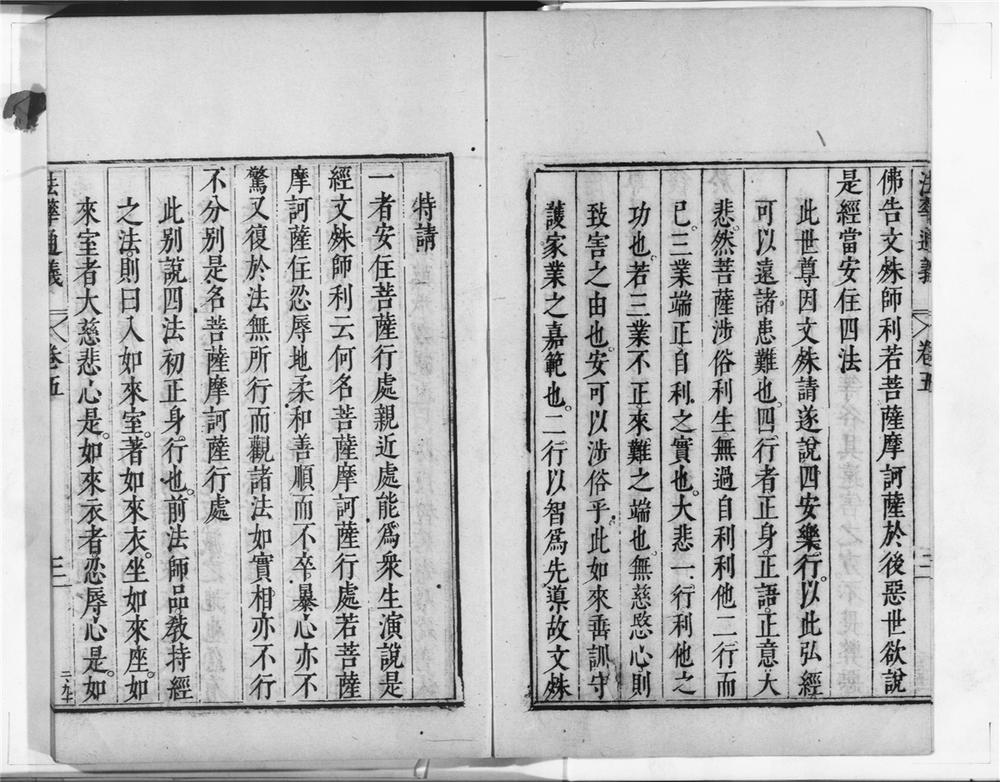 法華通義　卷五　二
佛告文殊師利若菩薩摩訶薩於後惡世欲說
是經當安住四法
此世尊因文殊請遂說四安樂行。以此弘經
可以遠諸患難也。四行者正身。正語。正意大
悲。然菩薩涉俗利生。無過自利利他二行而
已。三業端正自利之實也。大悲一行利他之
功也。若三業不正來難之端也。無慈愍心則
致害之由也。安可以涉俗乎。此如來垂訓守
護家業之嘉範也。二行以智爲先導故文殊
特請
一者安住菩薩行處親近處能爲衆生演說是
經文殊師利云何名菩薩摩訶薩行處若菩薩
摩訶薩住忍辱地柔和善順而不卒暴心亦不
驚又復於法無所行而觀諸法如實相亦不行
不分別是名菩薩摩訶薩行處
此別說四法初正身行也。前法師品。敎持經
之法。則曰入如來室。著如來衣。坐如來座。如
來室者大慈悲心是。如來衣者忍辱心是。如
法華通義　卷五　三